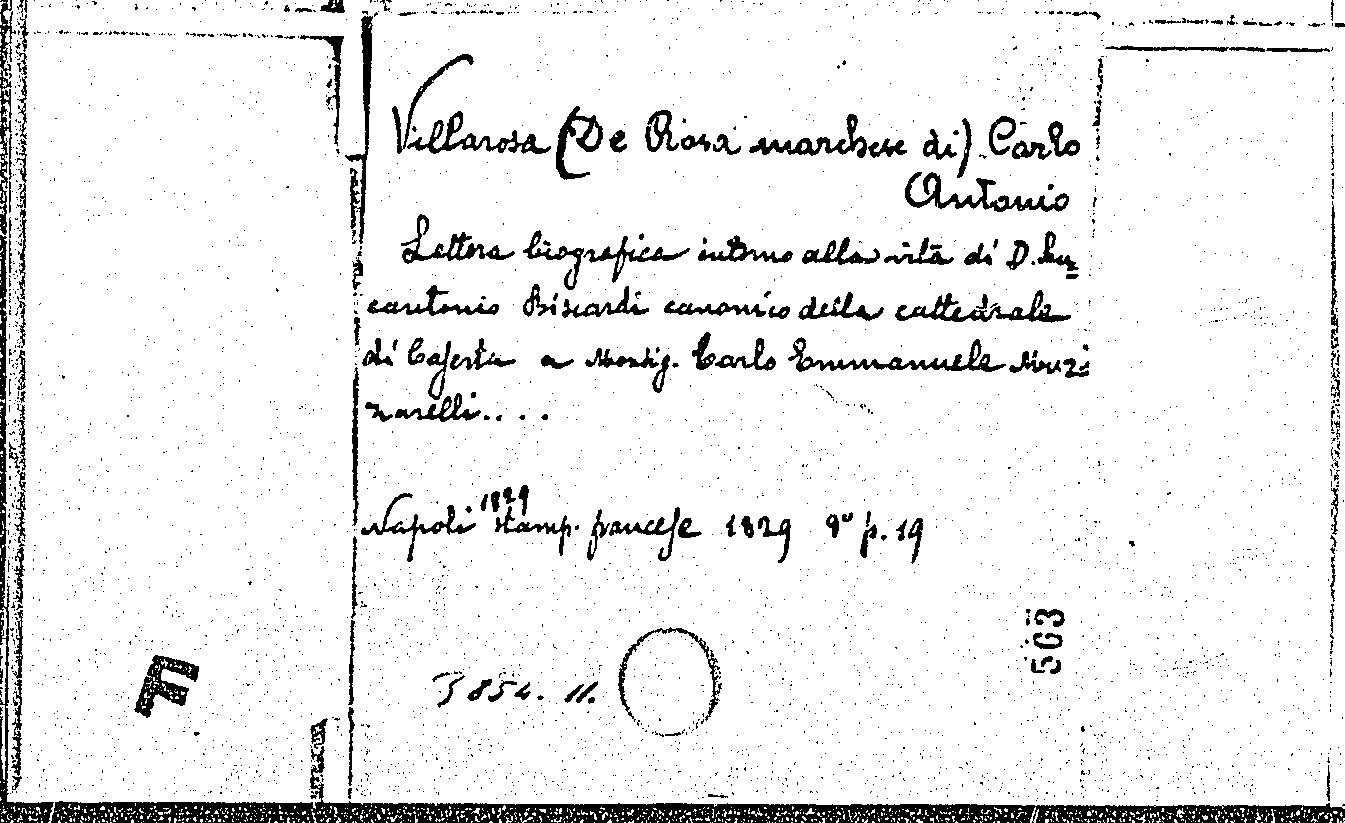 Villarosa (De Rosa marchese di) Carlo
Antonio
Lettera biografica intorno alla vita di D. Lu=
cantonio Biscardi canonico della cattedrale
di Caserta a Monsig. Carlo Emmanuele Muz=
zarelli....
1829
Napoli stamp. francese 1829 8° p. 19
563
854. 11.
F